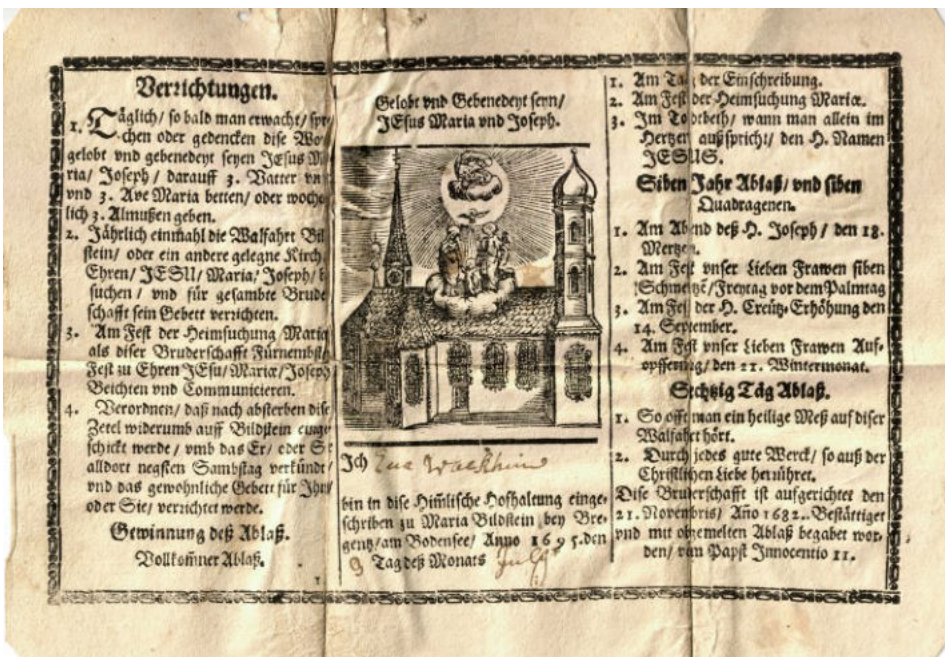 Verrichtungen.
1. Täglich/ so bald man erwacht/ spre-
chen oder gedencken dise Wo
gelobt vnd gebenedeyt seyen JEsus M
ria/ Joseph/ darauff 3. Vatter vn
vnd 3. Ave Maria betten/ oder woche
lich 3. Almußen geben.
2. Jährlich einmahl die Walfahrt Bil
stein/ oder ein andere gelegne Kirch
Ehren/ JESU/ Maria/ Joseph/ b
suchen / vnd für gesambte Brude
schafft sein Gebett verrichten.
3. Am Fest der Heimsuchung Mariæ
als diser Bruderschafft Fürnembste
Fest zu Ehren JEsu/ Mariæ/ Joseph
Beichten vnd Communicieren.
4. Verordnen/ daß nach absterben dise
Zetel widerumb auff Bildstein einge
schickt werde / vmb das Er/ oder Si
alldort negsten Sambstag verkündt/
vnd das gewohnliche Gebett für Ihn/
oder Sie/ verrichtet werde.
Gewinnung deß Ablaß.
Vollkom̃ner Ablaß.
Gelobt vnd Gebenedeyt seyn/
JEsus Maria vnd Joseph.
Ich
bin in dise Him̃lische Hofhaltung einge-
schriben zu Maria Bildstein bey Bre-
gentz/am Bodensee/ Anno 1695.den
9 Tag deß Monats July
1
1. Am Tag der Einschreibung.
2. Am Fest der Heimsuchung Mariæ.
3. Im Todtbeth/ wann man allein im
Hertzen außspricht/ den H. Namen
JESUS.
Siben Jahr Ablaß/ vnd siben
Quadragenen.
1. Am Abend deß H. Joseph / den 18.
Mertzen.
2. Am Fest vnser Lieben Frawen siben
Schmertzẽ/Freytag vor dem Palmtag
3. Am Fest der H. Creütz-Erhöhung den
14. September.
4. Am Fest vnser Lieben Frawen Auf-
opfferung/ den 21. Wintermonat.
Sechtzig Täg Ablaß.
1. So offt man ein heilige Meß auf diser
Walfahrt hört.
2. Durch jedes gute Werck/ so auß der
Christlichen Liebe herrühret.
Dise Bruderschafft ist aufgerichtet den
21. Novenbris/ Año 1682. Bestättiget
vnd mit obgemelten Ablaß begabet wor-
den/ von Papst Innocentio 11.